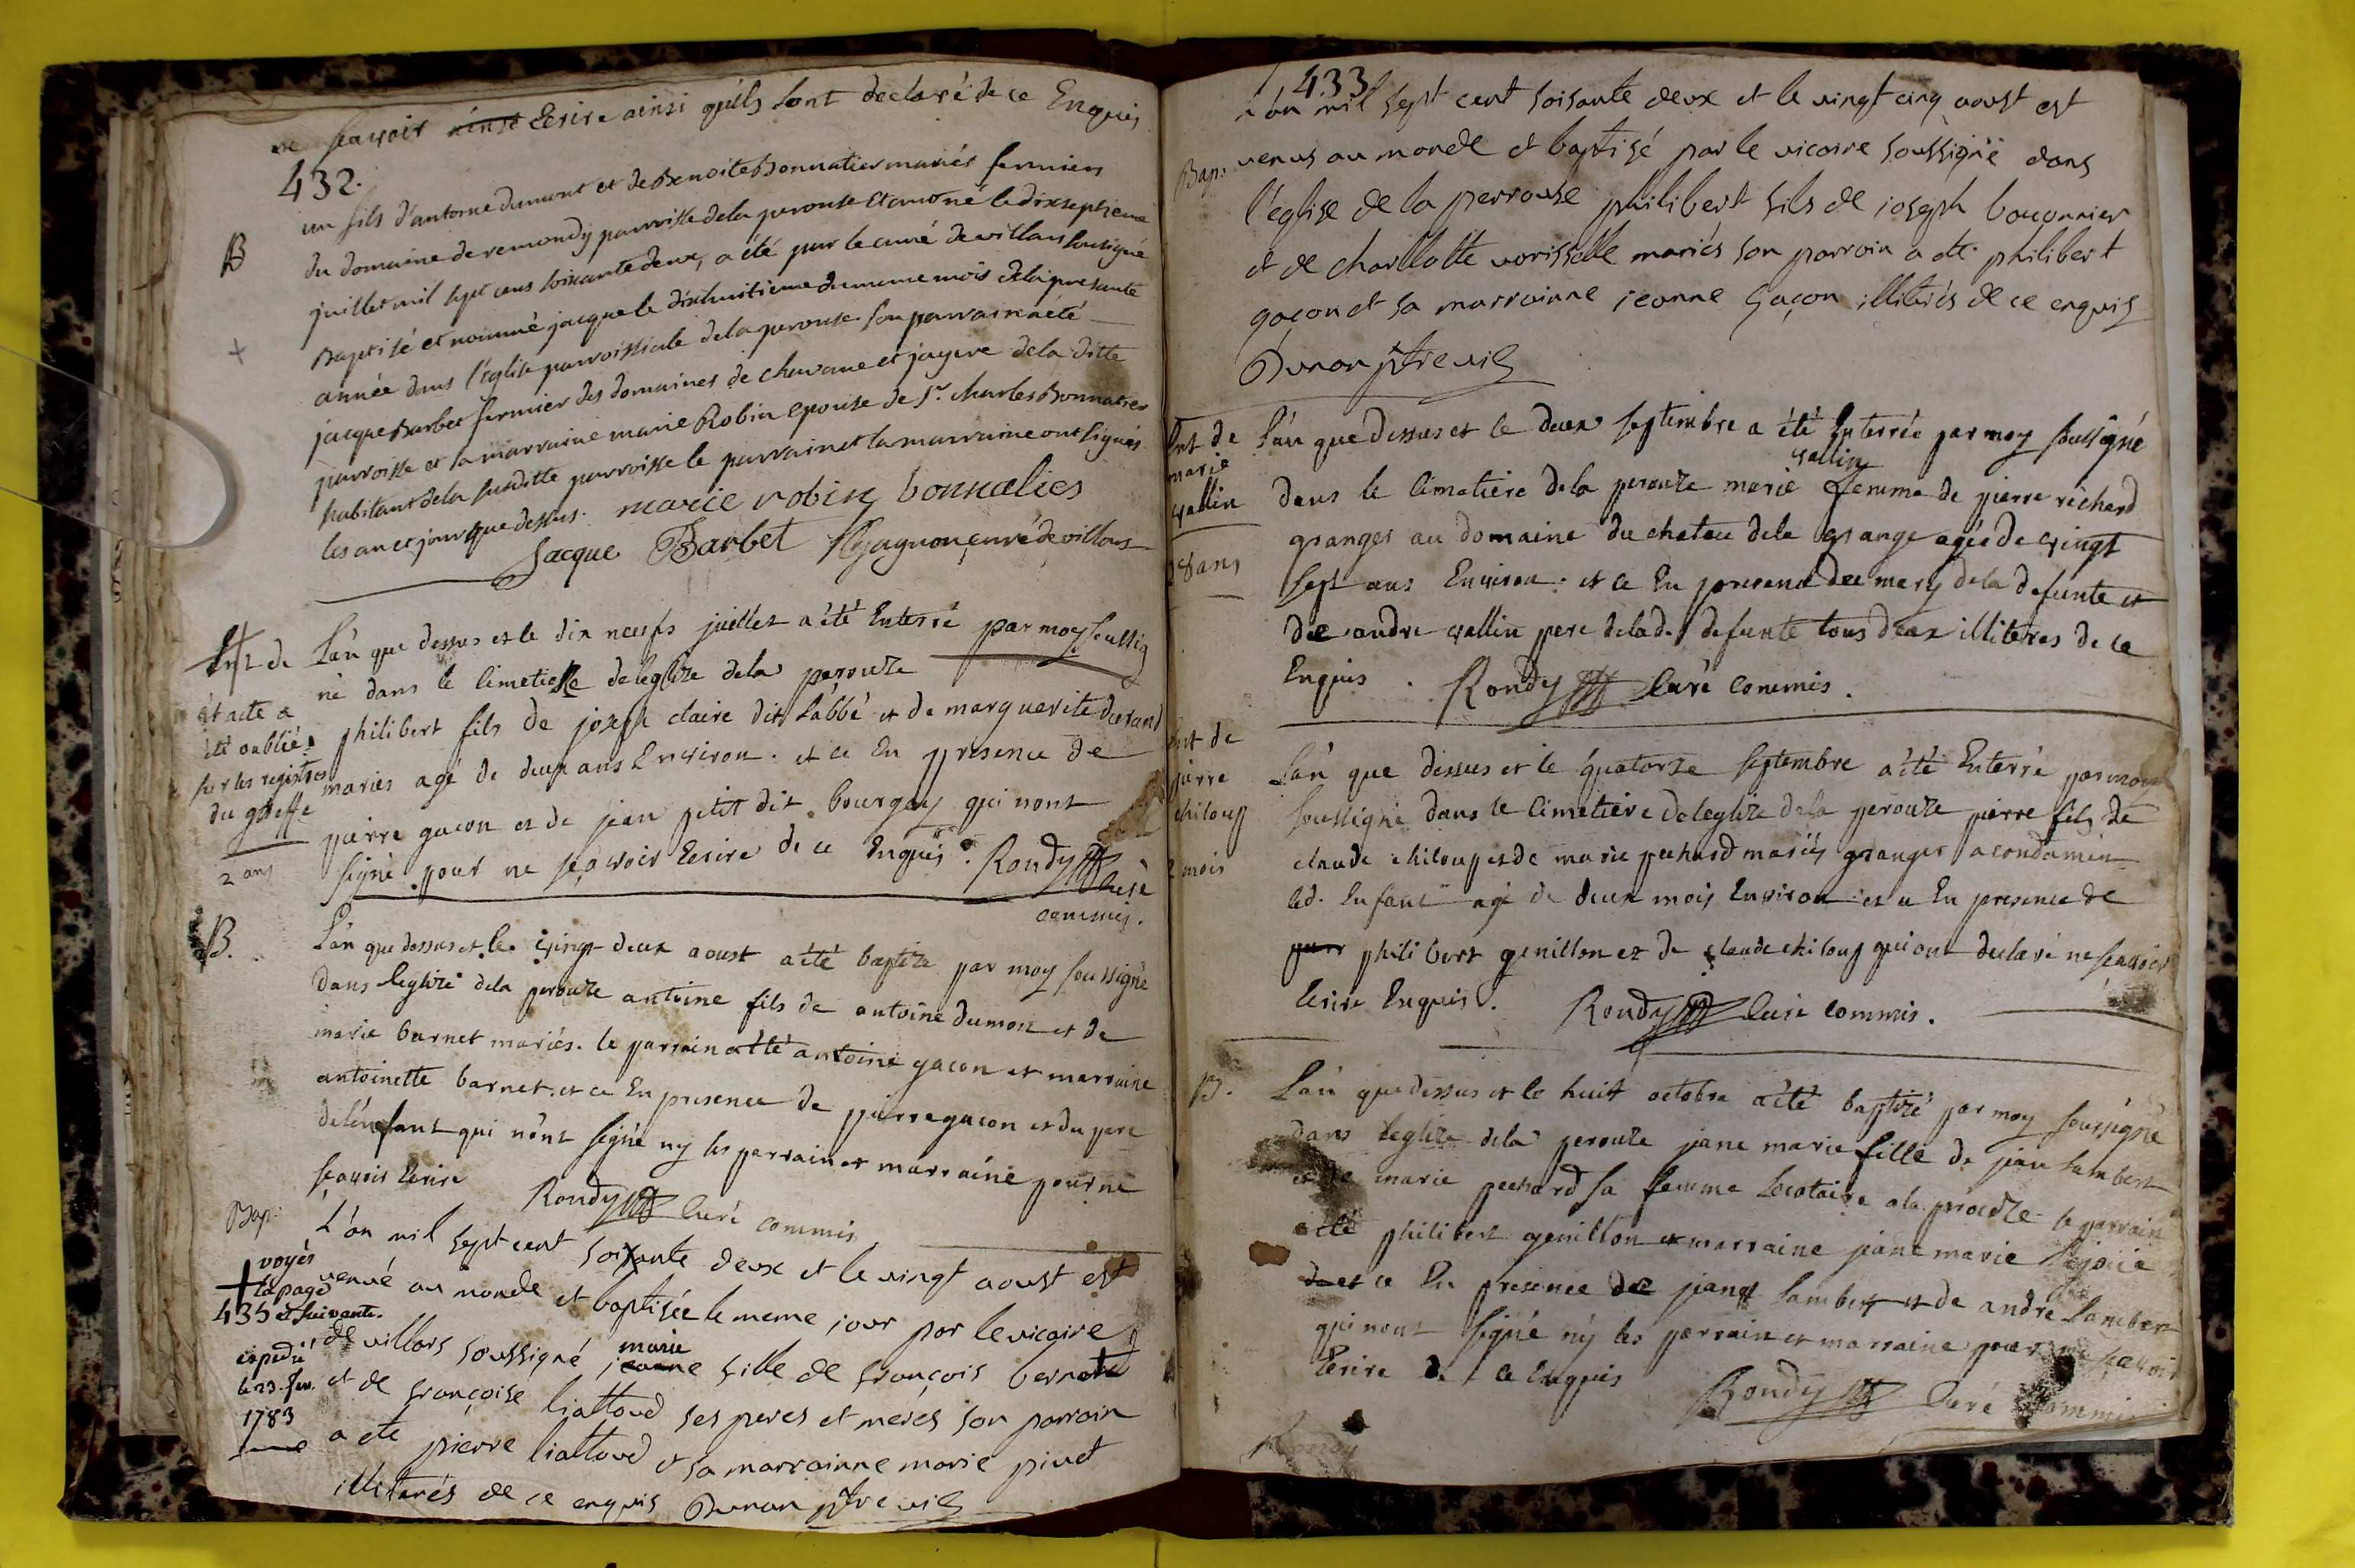 ne sçavoir ainsi Ecrire ainsi quils sont declaré de ce Enquis
432.
B
un fils d'antoine dumont et de Benoite Bonnatier mariés fermiers
du domaine de remondy parroisse de la perouse est amoné le dixseptieme
juillet mil sept cens soixante deux, a été par le curé de villars sousigné
Baptisé et nommé jacque le dixhuitieme du meme mois de la presente
+
année dans l'église parroissiale de la perouse son parrain a été
jacque Barbet fermier des domaines de chavane et jayere de la ditte
parroisse et sa marraine marie Robin epouse de Sr. charles Bonnatier
habitant de la susditte parroisse le parrain et la marraine ont signés
les an et jour que dessus. marie robin bonnalies
Jacque Barbet gagnon curé de villars
Ent de
Et acte a
été oublié
sur les registres
du greffe
2 ans
L'an que dessus et le dix neufs juillet a été Enterré par moy soussig
né dans le cimetiere de leglize dela perouze
philibert fils de joseph claire dit Labbé et de marguerite durand
mariés agé de deux ans Environ. et ce En presence de
pierre gacon et de jean petit dit bourgay qui nont
signé pour ne sçavoir Ecrire de ce Enquis. Rondy Curé
commis.
B.
L'an que dessus et le vingt deux aoust a été baptizé par moy soussigné
dans leglize dela perouze antoine fils de antoine dumon et de
marie burnet mariés. le parrain a été antoine gacon et marraine
antoinette barnet. et ce En presence de pierre gacon et du pere
de lénfant qui nónt signé ny les parrain et marraine pour ne
sçavoir Ecrire Rondy Curé commis
Bap:
L'an mil sept cent soixante deux et le vingt aoust est
+ voyés
la page
435 et suivante.
expedié
le 23. fev.
1783
venue au monde et baptisée le meme jour par le vicaire
de villars soussigné jeanne marie fille de françois bernard
et de françoise liattoud ses peres et meres son parrain
a ete pierre liattoud et sa marrainne marie pivet
illiterés de ce enquis Dunan ptre vic
433
L'an mil sept cent soisante deux et le vingt cinq aoust est
Bap:
venus au monde et baptisé par le vicaire soussigné dans
l'eglise de la perrouse philibert fils de joseph bouconnier
et de charllotte vorisselle mariés son parroin a ete philibert
gaçon et sa marrainne jeanne Gaçon illiterés de ce enquis
Dunan ptre vic
Ent de
marie
vallin
28 ans
L'an que dessus et le deux septembre a été Enterrée par moy soussigné
dans le cimetiere dela perouze marie vallin femme de pierre richard
granger au domaine du chateau dela grange agée de vingt
sept ans Environ. et ce En presence du mary dela defunte et
de andre vallin pere delad. defunte tous deux illiteres de ce
Enquis. Rondy Curé commis.
Ent de
pierre
chiloup
2 mois
L'an que dessus et le quatorze septembre a été Enterré par moy
soussigné dans le cimetiere de leglize dela perouze pierre fils de
claude chiloup et de marie pechard mariés granger a condamin
led. Enfant agé de deux mois Environ et ce En presence de
pierr philibert genillon et de claude chiloup qui ont declaré ne sçavoir
Ecrire Enquis. Rondy Curé commis.
B.
L'an que dessus et le huit octobre a été baptizé par moy soussigné
dans leglize dela perouze jane marie fille de jean Lambert
et de marie pechard sa femme locataire a la perouze le parrain
a été philibert genillon et marraine jane marie Lajoie
de et ce En presence de jean Lambert et de andre Lambert
qui nont signé ny les parrain et marraine pour ne sçavoir
Ecrire de ce Enquis Rondy Curé commis
Rondy